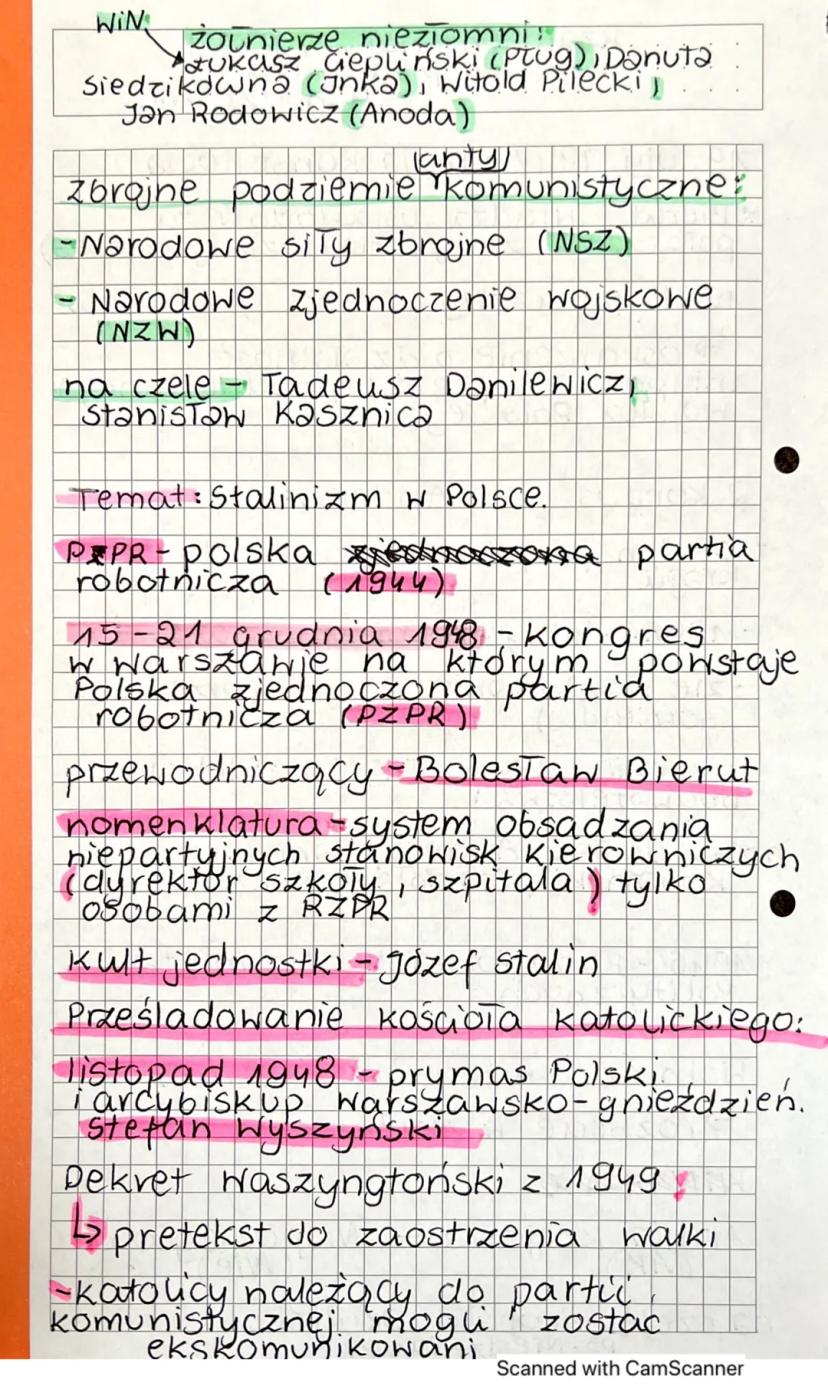 WiN
żołnierze niezłomni:
Łukasz Ciepliński (Pług), Danuta
Siedzikówna (Inka), Witold Pilecki,
Jan Rodowicz (Anoda)
(anty)
zbrojne podziemie komunistyczne:
- Narodowe siły zbrojne (NSZ)
- Narodowe zjednoczenie wojskowe
(NZW)
na czele - Tadeusz Danilewicz,
Stanisław Kasznica
Temat: Stalinizm w Polsce.
PPR - polska zjednoczona partia
robotnicza (1944)
15-21 grudnia 1948 - kongres
w warszawie na którym powstaje
Polska zjednoczona partia
robotnicza (PZPR)
przewodniczący - Bolesław Bierut
nomenklatura - system obsadzania
niepartyjnych stanowisk kierowniczych
(dyrektor szkoły, szpitala) tylko
osobami z PZPR
Kult jednostki - Józef Stalin
Prześladowanie kościoła katolickiego:
listopad 1948 - prymas Polski
i arcybiskup warszawsko-gnieździeń.
Stefan Wyszyński
Dekret waszyngtoński z 1949:
↳ pretekst do zaostrzenia walki
- katolicy należący do partii
komunistycznej mogli zostać
ekskomunikowani
Scanned with CamScanner